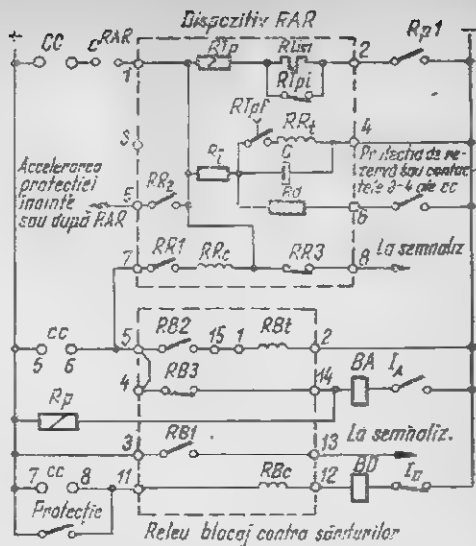 Dispozitiv RAR
+
CC
C RAR
1
RTp
Rlist
RTpi
2
Rp1
RTpf
RRt
4
3
Ri
C
Rd
6
Protecția de re-
zervă sau contac-
tele 3-4 ale cc
Accelerarea
protecției
înainte
sau după RAR
5
RR2
7
RR1
RRc
RR3
8
La semnaliz
cc
5 6
5
RB2
15
1
RBt
2
4
RB3
14
BA
IA
Rp
3
RB1
13
La semnaliz.
7 cc 8
11
RBc
12
BD
Protecție
Releu blocaj contra săriturilor